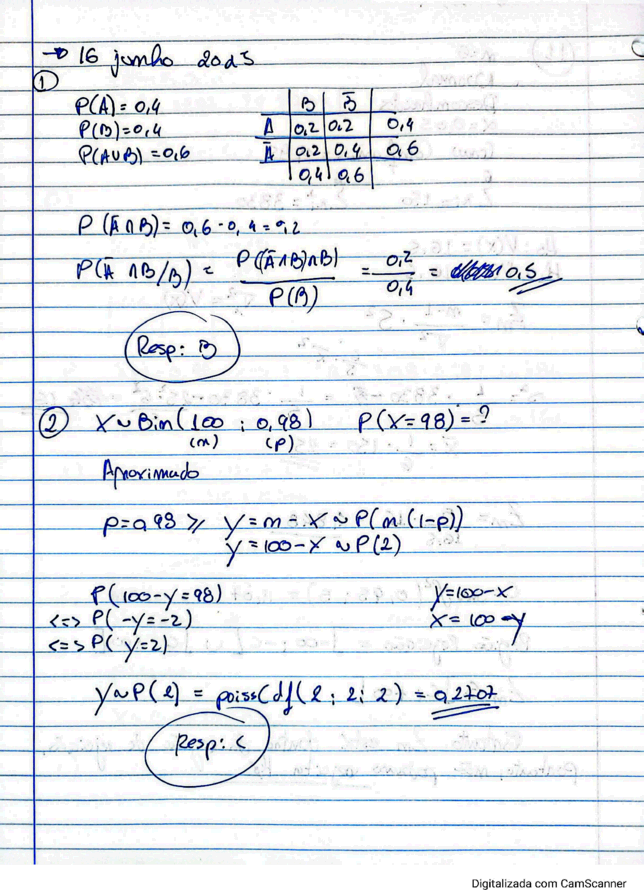 → 16 junho 2025
①
P(A) = 0,4
P(B) = 0,4
P(A∪B) = 0,6
B B̄
A 0,2 0,2 0,4
Ā 0,2 0,4 0,6
0,4 0,6
P(Ā∩B) = 0,6-0,4 = 0,2
P(Ā∩B/B) = P((Ā∩B)∩B) / P(B) = 0,2 / 0,4 = 0,5
Resp: B
② X~Bin(100 ; 0,98) P(X=98)=?
(n) (p)
Aproximado
p=0,98 ≥ Y=n-X~P(n(1-p))
Y=100-X ~P(2)
P(100-Y=98) Y=100-X
<=> P(-Y=-2) X=100-Y
<=> P(Y=2)
Y~P(2) = poissCdf(2; 2; 2) = 0,2707
Resp: C
Digitalizada com CamScanner